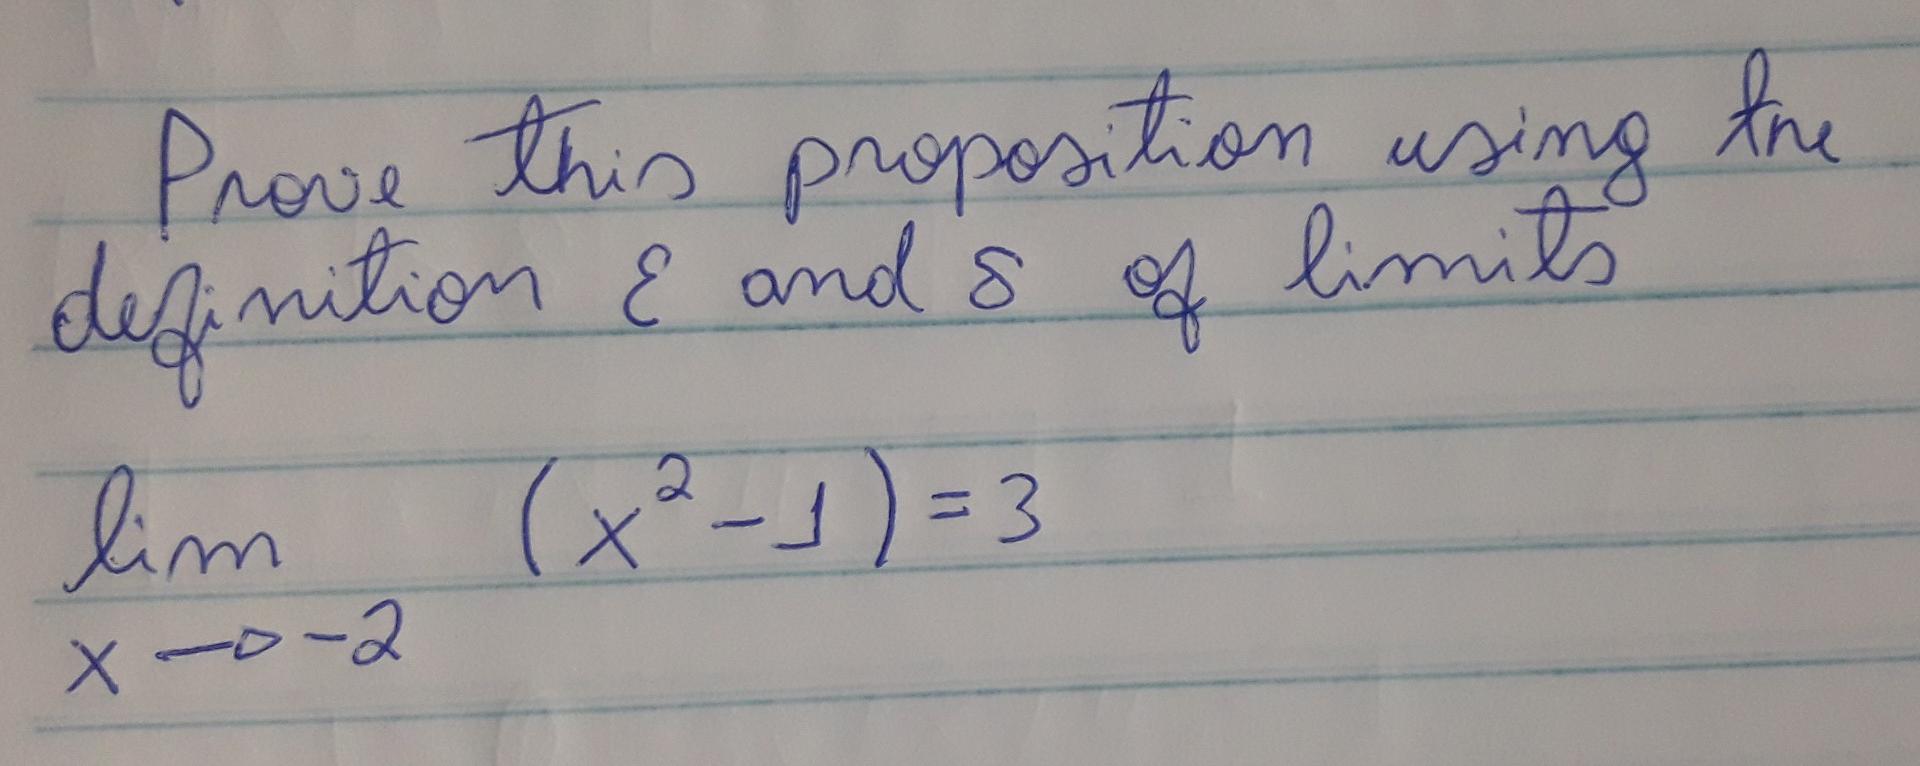 Prove this proposition using the
definition ε and δ of limits
lim (x² - 1) = 3
x → -2